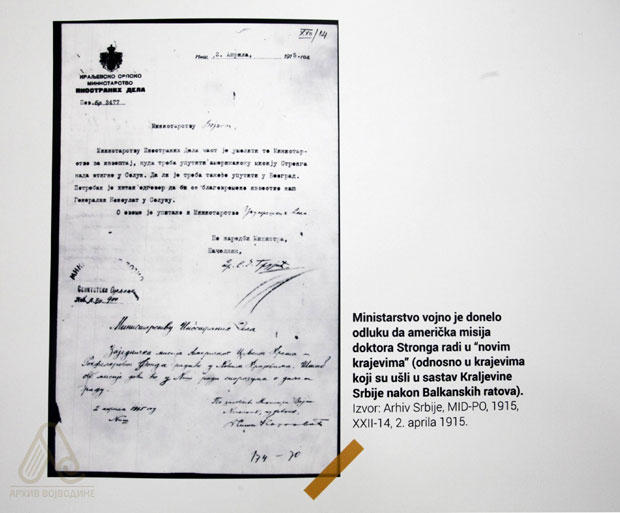 XXII/14
Ниш, 2. Априла, 1915-год
КРАЉЕВСКО СРПСКО
МИНИСТАРСТВО
ИНОСТРАНИХ ДЕЛА
Пов. бр. 3477
Министарству Војном,
Министарству Иностраних Дела част је умолити то Министар-
ство за извештај, куда треба упутити американску мисију Стронга
када стигне у Солун. Да ли је треба такође упутити у Београд.
Потребан је хитан одговор да би се благовремено известио наш
Генерални Консулат у Солуну.
О овоме је упитано и Министарство Унутрашњих Дела
По наредби Министра,
Начелник,
Министарству Иностраних Дела
Заједничка мисија Американског Црвеног Крста и
Рокфелеровог Фонда радиће у Новим Крајевима.
2 априла 1915 год
Ниш
174-70
Ministarstvo vojno je donelo
odluku da američka misija
doktora Stronga radi u “novim
krajevima” (odnosno u krajevima
koji su ušli u sastav Kraljevine
Srbije nakon Balkanskih ratova).
Izvor: Arhiv Srbije, MID-PO, 1915,
XXII-14, 2. aprila 1915.
АРХИВ ВОЈВОДИНЕ